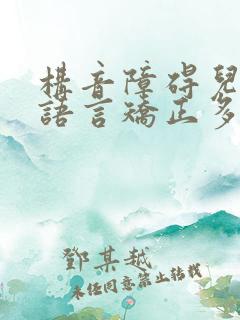 構音障碍兒
語言矯正多
鄧某越
未经同意禁止转载